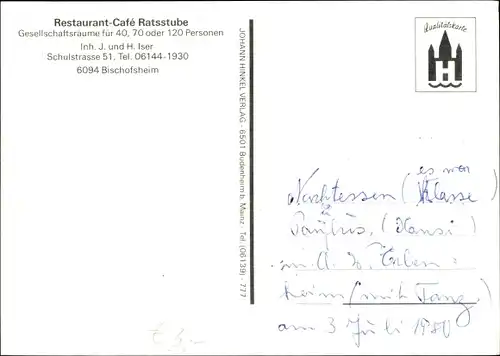 Restaurant-Café Ratsstube
Gesellschaftsräume für 40, 70 oder 120 Personen
Inh. J. und H. Iser
Schulstrasse 51, Tel. 06144-1930
6094 Bischofsheim
JOHANN HINKEL VERLAG - 6501 Budenheim b. Mainz - Tel. (06139) - 777
Qualitätskarte
es war
Nachtessen (Klasse)
(Hansi)
heim (mit Tanz)
am 3 Juli 1980